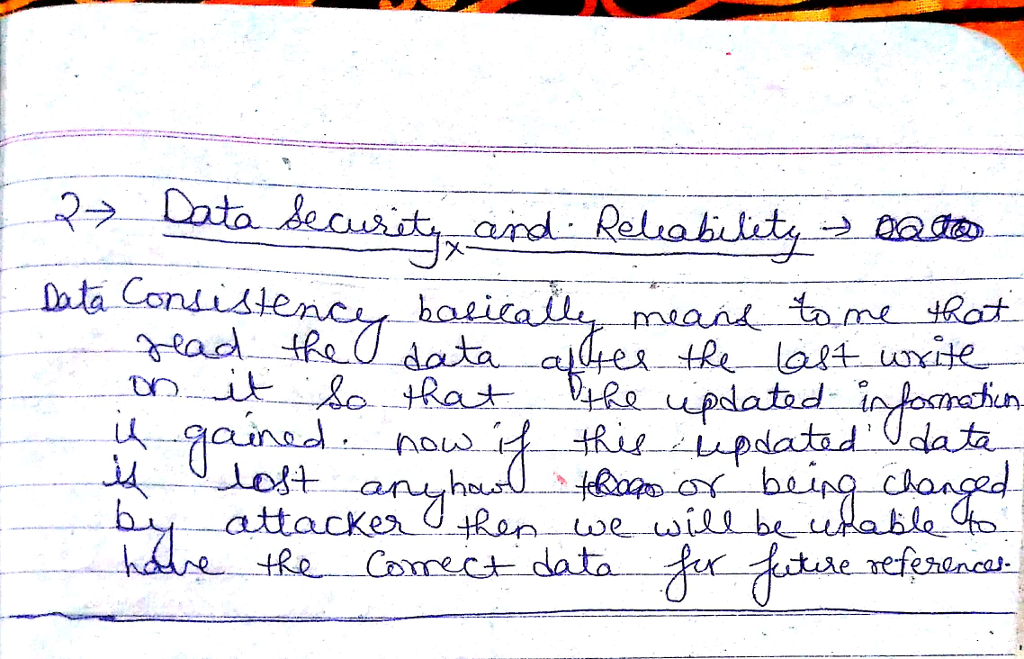 2→ Data Security and Reliability →
Data Consistency basically means to me that
read the data after the last write
on it so that the updated information
is gained. now if this updated data
is lost anyhow or being changed
by attacker then we will be unable to
have the correct data for future references.